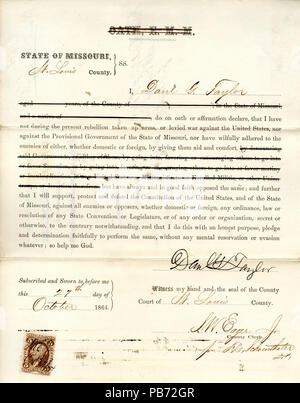 OATH, E. M. M.
STATE OF MISSOURI,
St. Louis County. } SS.
I, Danl G. Taylor
aged years, of the County of , in the State of Missouri,
do on oath or affirmation declare, that I have
not during the present rebellion taken up arms, or levied war against the United States, nor
against the Provisional Government of the State of Missouri, nor have wilfully adhered to the
enemies of either, whether domestic or foreign, by giving them aid and comfort,
but have always and in good faith opposed the same; and further
that I will support, protect and defend the Constitution of the United States, and of the State
of Missouri, against all enemies or opposers, whether domestic or foreign, any ordinance, law
or resolution of any State Convention or Legislature, or of any order or organization, secret or
otherwise, to the contrary notwithstanding, and that I do this with an honest purpose, pledge
and determination faithfully to perform the same, without any mental reservation or evasion
whatever; so help me God.
Danl G. Taylor
Subscribed and Sworn to before me
this 27th day of
October 1864.
Witness my hand and the seal of the County
Court of St. Louis County.
County Clerk.
alamy
Image ID: PB72GR
www.alamy.com